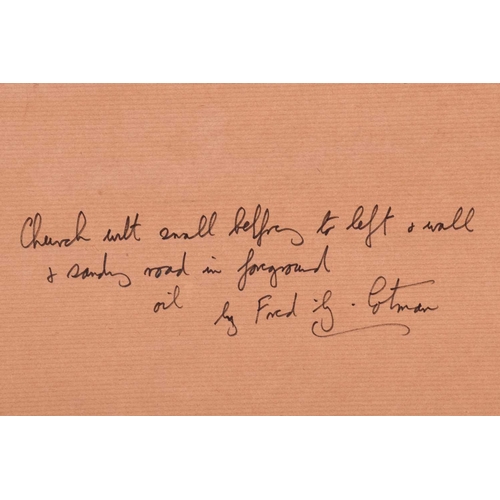 Church with small belfry to left & wall
& sandy road in foreground
oil by Fred G. Cotman